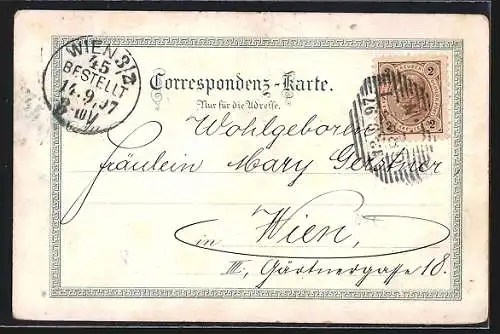 WIEN 3/2
45
BESTELLT
14.9.97
Correspondenz-Karte.
Nur für die Adresse.
2
Wohlgeboren
Fräulein Mary Gerstner
in Wien,
III., Gärtnergasse 18.